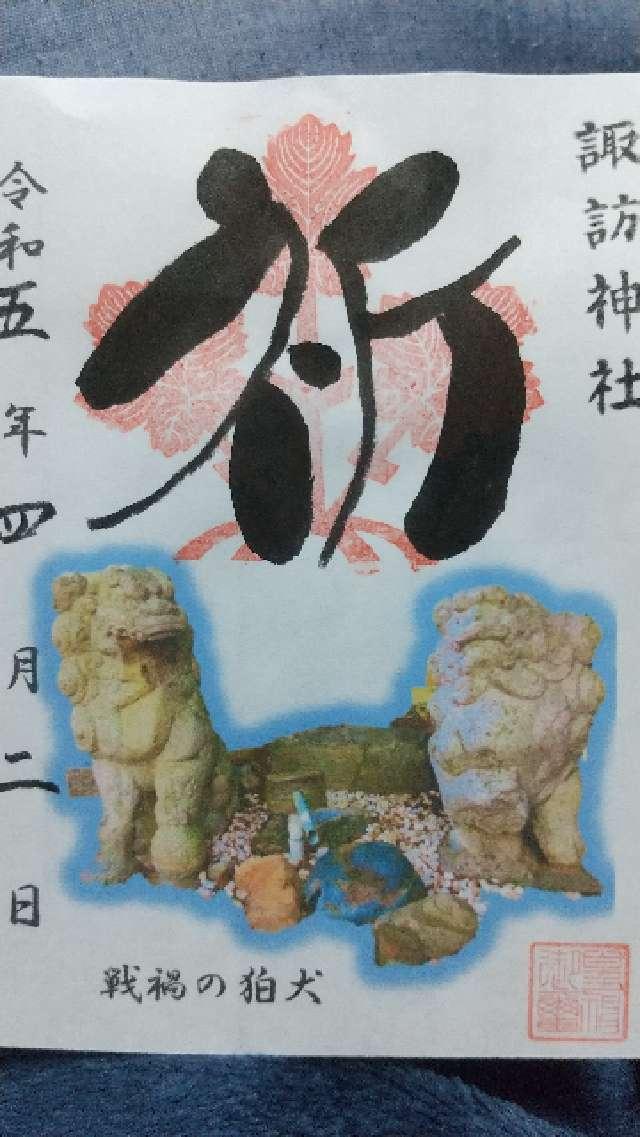 諏訪神社
祈
令和五年四月二日
戦禍の狛犬